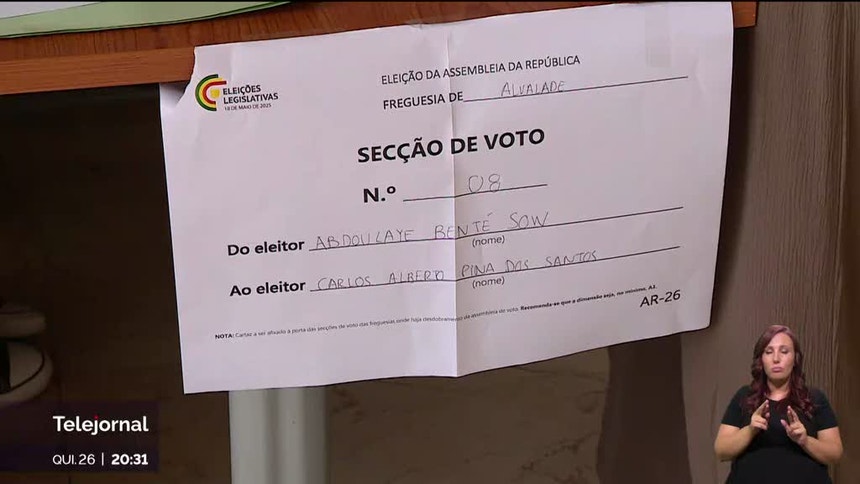 ELEIÇÕES
LEGISLATIVAS
18 DE MAIO DE 2025
ELEIÇÃO DA ASSEMBLEIA DA REPÚBLICA
FREGUESIA DE ALVALADE
SECÇÃO DE VOTO
N.º 08
Do eleitor ABDOULAYE BENTÉ SOW
(nome)
Ao eleitor CARLOS ALBERTO PINA DOS SANTOS
(nome)
AR-26
NOTA: Cartaz a ser afixado à porta das secções de voto das freguesias onde haja desdobramento da assembleia de voto. Recomenda-se que a dimensão seja, no mínimo, A3.
Telejornal
QUI.26 | 20:31